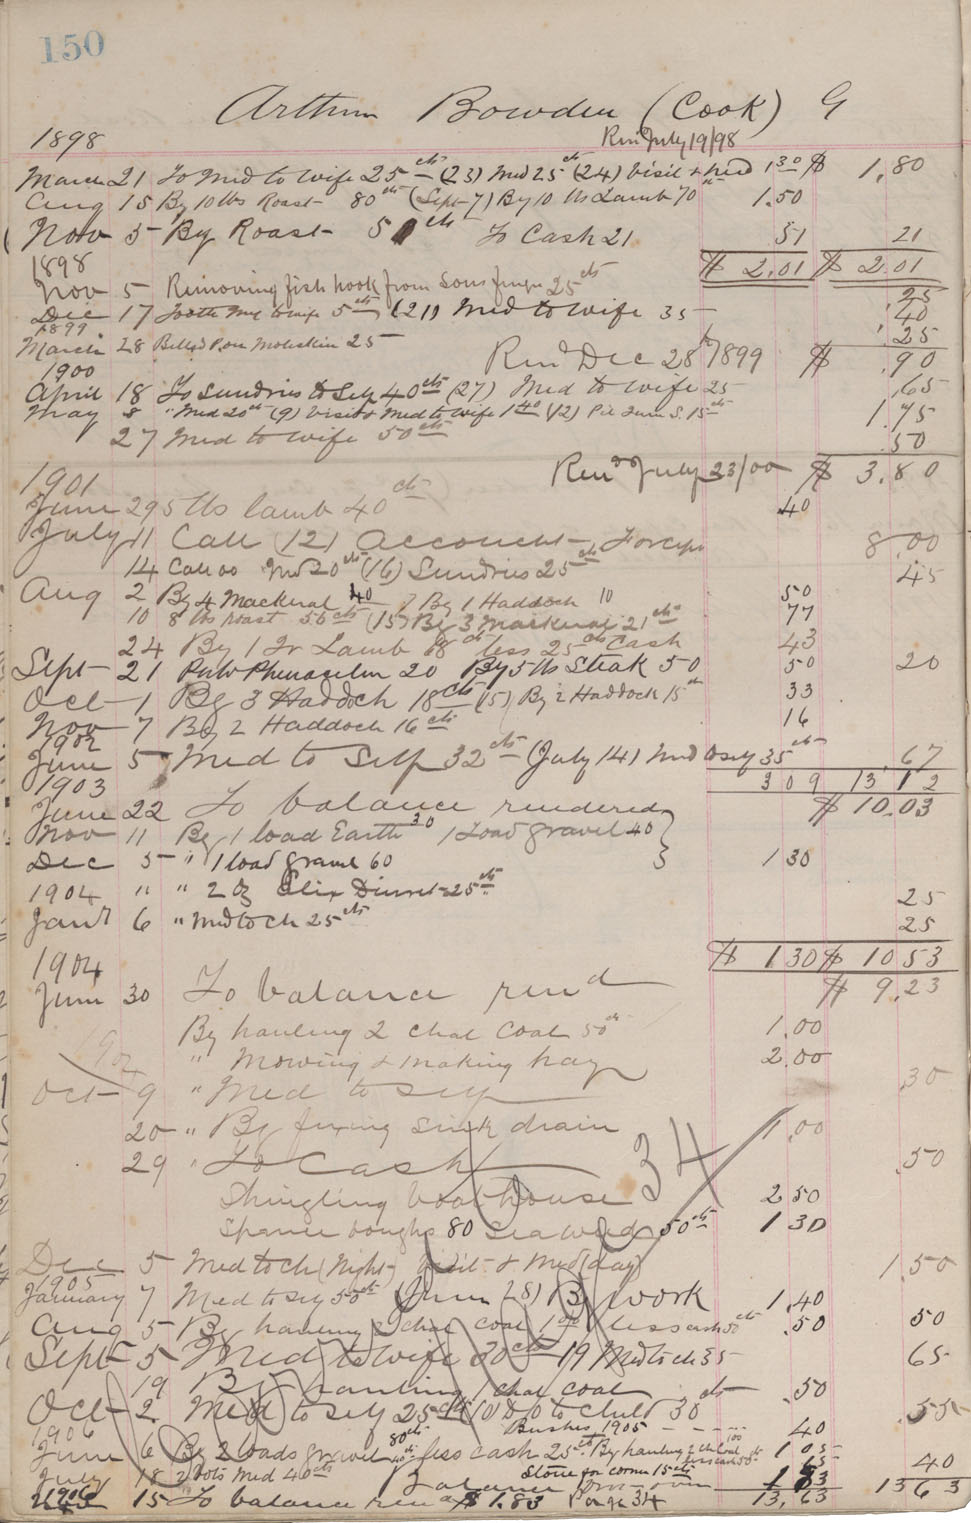 150
Arthur Bowden (Cook) G
1898 Ren'd July 19/98
March 21 To Med to wife 25 cts (23) Med 25 cts (24) Visit & Med 1 30 $ 1.80
Aug 15 By 10 lbs Roast 80 cts (Sept 7) By 10 lbs Lamb 70 cts 1.50
Nov 5 By Roast 51 cts To Cash 21 51 21
$ 2.01 $ 2.01
1898
Nov 5 Removing fish hook from Sons finger 25 cts .25
Dec 17 Tooth Med to wife 5 cts (21) Med to wife 35 40
1899
March 28 Bellad Porr Moleskin 25 .25
Ren'd Dec 28th/1899 $ .90
1900
April 18 To Sundries to Self 40 cts (27) Med to wife 25 .65
May 8 " Med 20 cts (9) Visit & Med to wife 1 40 (12) Pil S. 15 cts 1.75
27 Med to wife 50 cts 50
Ren'd July 23/00 $ 3.80
1901
June 29 5 lbs lamb 40 cts 40
July 11 Call (12) Accouch Forceps 8.00
14 Call 00 Med 20 cts (16) Sundries 25 cts 45
Aug 2 By 4 Mackeral 40 7 By 1 Haddock 10 50
10 8 lbs roast 56 cts (15) By 3 Mackeral 21 cts 77
24 By 1 Qr Lamb 68 cts less 25 cts Cash 43
Sept 21 Pulv Phenacetin 20 By 5 lbs Steak 50 50 20
Oct 1 By 3 Haddock 18 cts (15) By 2 Haddock 15 cts 33
Nov 7 By 2 Haddock 16 cts 16
1902
June 5 Med to Self 32 cts (July 14) Med to self 35 cts .67
3 09 13 12
1903
June 22 To balance rendered $ 10.03
Nov 11 By 1 load Earth 30 1 Load gravel 40
Dec 5 " 1 load gravel 60 1 30
1904 " " 2 oz Elix Diuret 25 cts 25
Jan'y 6 " Med to ch 25 cts 25
$ 1 30 $ 10 53
1904
June 30 To balance ren'd $ 9.23
By hauling 2 chal Coal 50 cts 1.00
" Mowing & making hay 2.00
1904
Oct 9 " Med to self 30
20 " By fixing sink drain 1.00
29 " To Cash .50
Shingling boathouse 2 50
Spruce boughs 80 Seaweed 50 cts 1 30
34
Dec 5 Med to ch (Night) Visit & Med (day) 1.50
1905
January 7 Med to self 50 cts (June 28) By work 1.40 50
Aug 5 By hauling 2 chal coal 1 00 less cash 50 cts .50
Sept 5 Med to wife 30 cts 19 Med to ch 35 65
19 By hauling 1 chal coal .50
Oct 2 Med to self 25 cts (10) Do to child 30 cts 55
1906 Bushes 1905 40
June 6 By 2 loads gravel 80 cts less cash 25 cts By hauling 2 ch Coal 100 less cash 50 cts 1 05
July 18 2 bots Med 40 cts Stone for corner 15 cts 15 40
Balance over 1 83
13,63 13 63
1906
15 To balance ren'd $ 1.83 Page 34